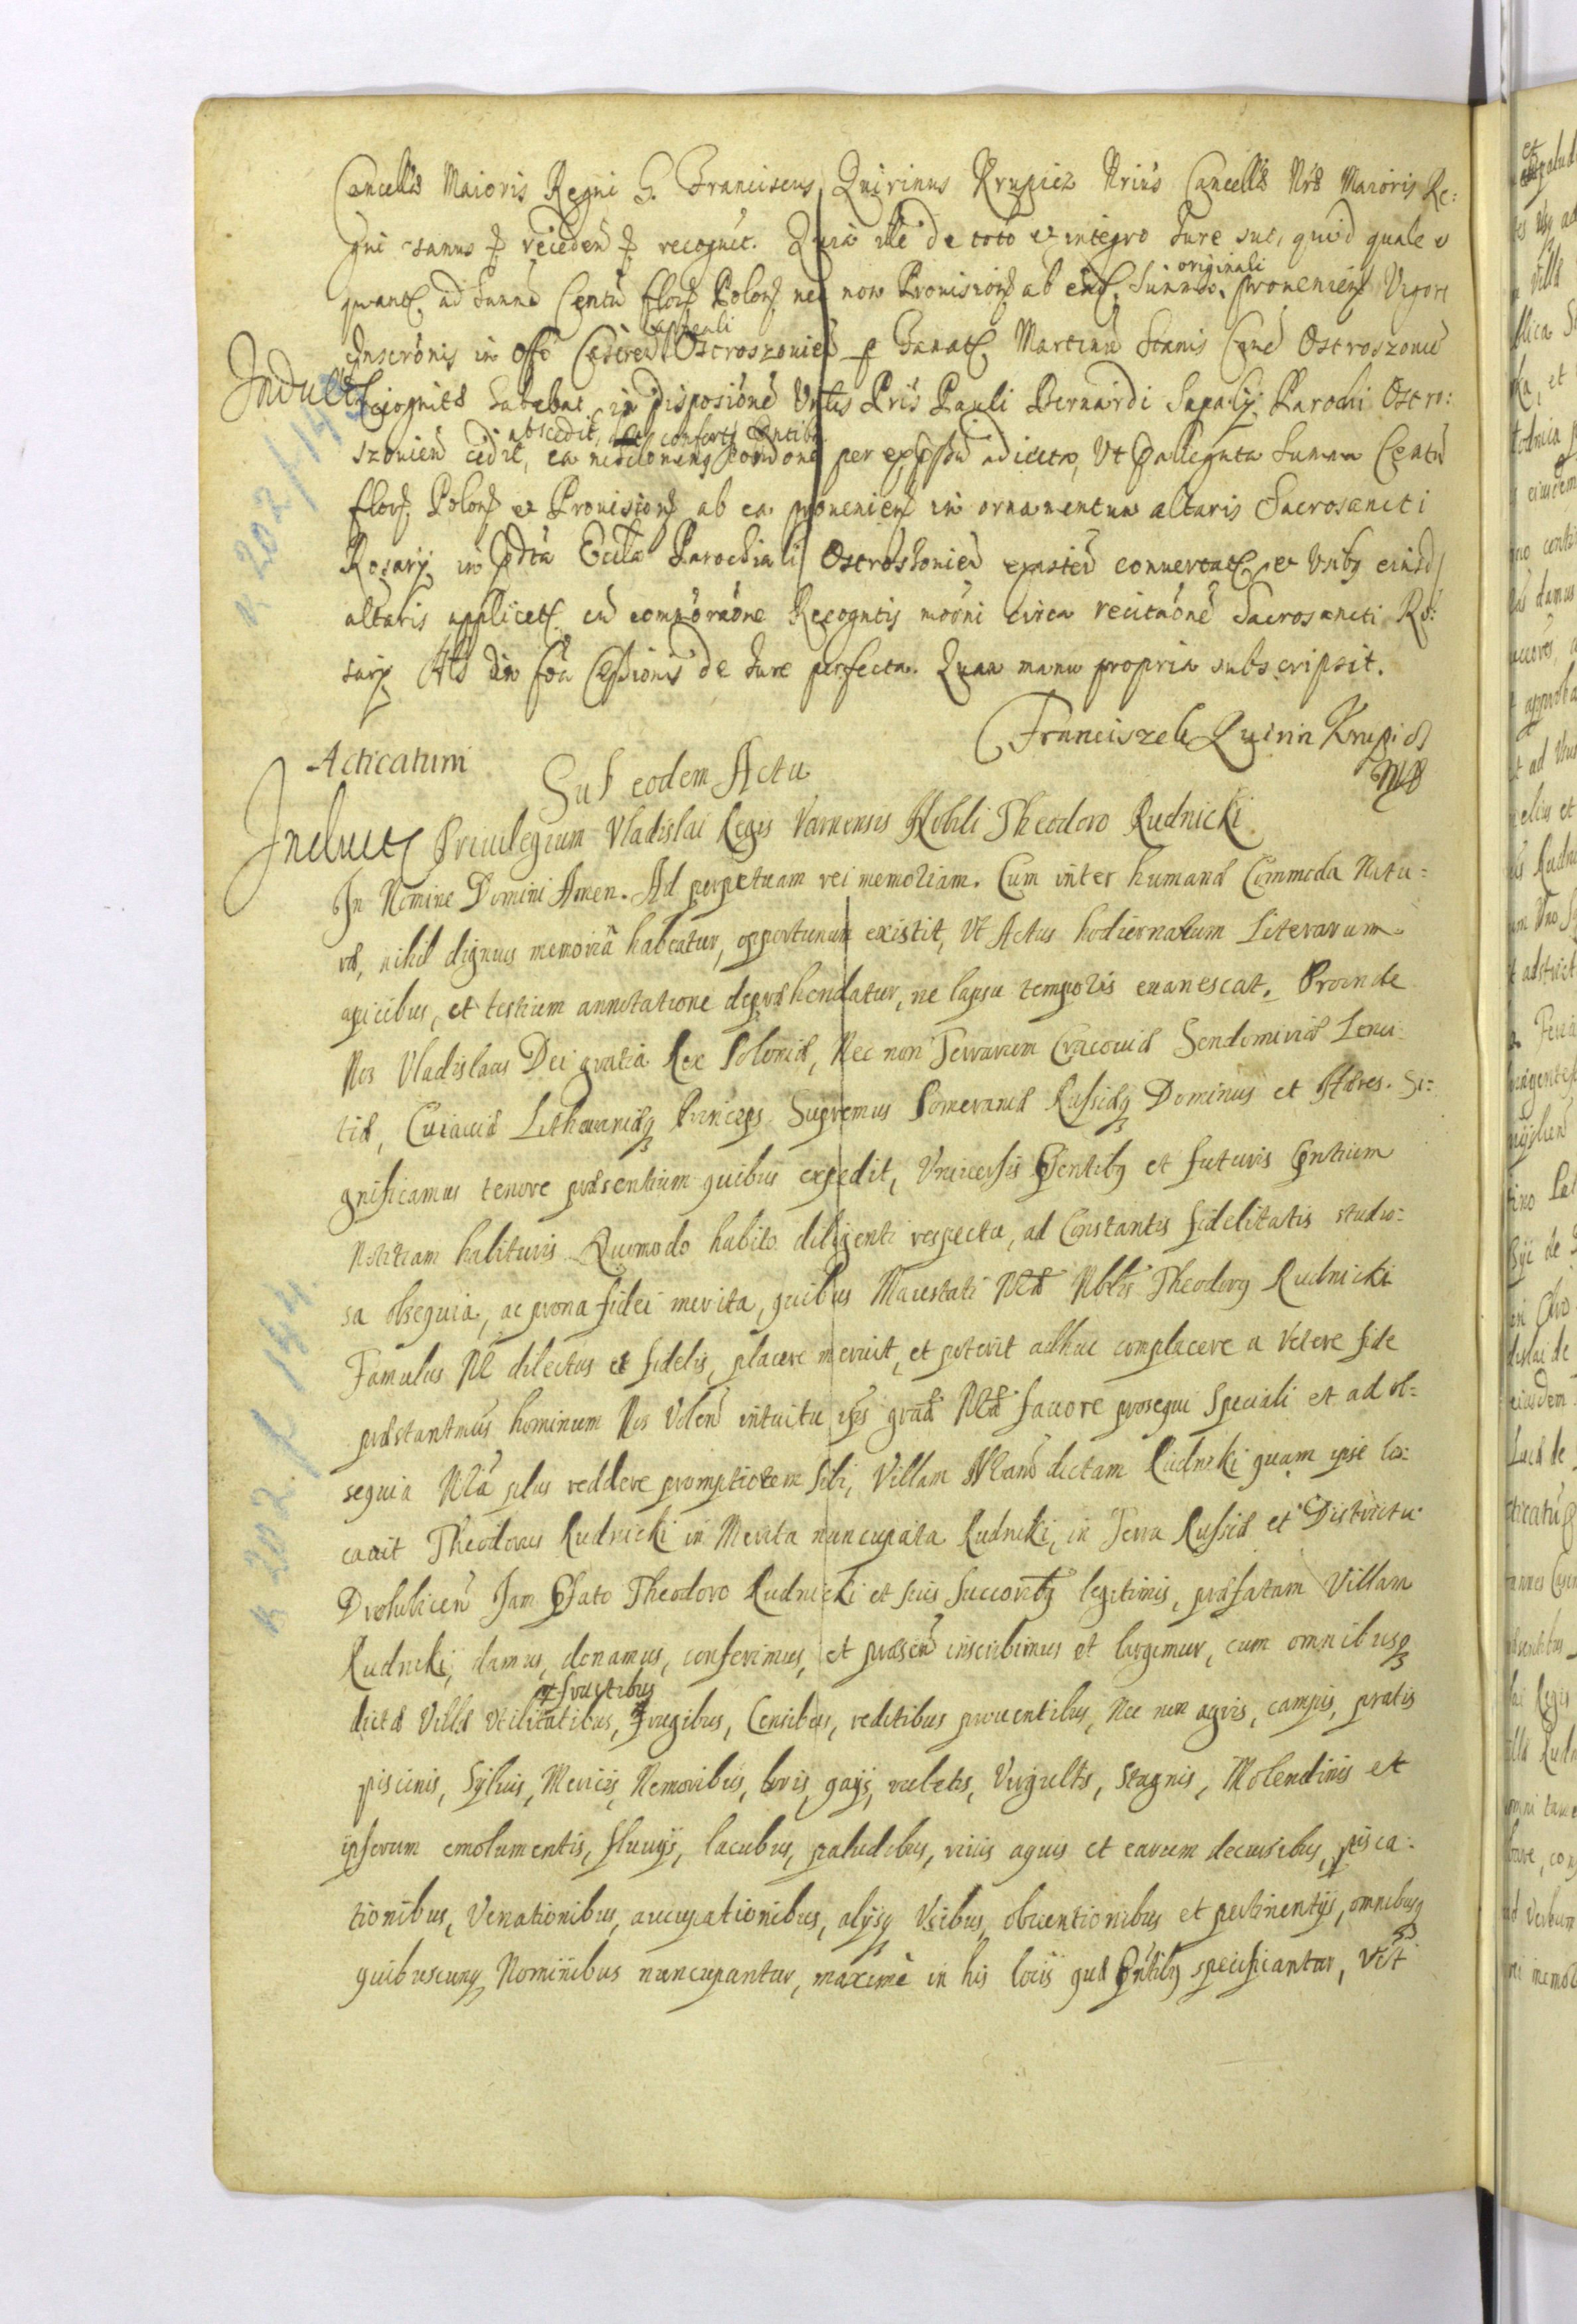 Cancellæ Maioris Regni G. Franciscus Quirinus Krupicz Nrius Cancellæ Nræ Maioris Re:
gni sanus recedens recognit. Quia ille de toto et integro Jure suo, quod quale et
quant ad Summæ Centu flor Polon nec non Provision ab ead Summa originali provenien Vigore
Inscrônis in Offô Castren Capitali Ostroszovien p Martinu Stanis Ostroszoviê
Induct recognitæ habebat, in disposiône Vrlis Pris Pauli Bernardi Sapaly Parochi Ostro:
szovien cedit, abscedit, ea conditione per expressu adiecta, Ut pallegata Summa Centu
flor Polon et Provision ab ea provenien in ornamentum altaris Sacrosancti
Rosarij in pdta Eccla Parochiali Ostroszovien existen convertat et Usibq eiusd
altaris applicet cu comporaône Recogntis moôni circa recitaône Sacrosancti Ro:
sarij Als in foa Cessionis de Jure perfecta. Quam manu propria subscripsit.
Franciszek Quirin Krupicz
mp
Acticatum
Sub eodem Actu
Induct Privilegium Vladislai Regis Varnensis Nobili Theodoro Rudnicki
In Nomine Domini Amen. Ad perpetuam rei memoriam. Cum inter humanæ Commoda Natu:
ræ, nihil dignius memoriâ habeatur, opportunum existit, Ut Actus hodiernarum Literarum
apicibus, et testium annotatione depræhendatur, ne lapsu temporis evanescat. Proinde
Nos Vladislaus Dei gratia Rex Poloniæ, Nec non Terrarum Cracoviæ Sendomiriæ Lenci:
tiæ, Cuiaviæ Lithvaniæq Princeps Supremus Pomeraniæ Russiæq Dominus et Hæres. Si:
gnificamus tenore præsentium quibus expedit, Universis Psentibq et futuris Pntium
Notitiam habituris Quomodo habito diligenti respectu, ad Constantis fidelitatis studio:
sa obsequia, ac prona fidei merita, quibus Maiestati Nræ Nblis Theodorq Rudnicki
Famulus Nr dilectus et fidelis, placere meruit, et poterit adhuc complacere a Vetere fide
præstantmus hominum Nos Volen intuitu ips græ Nræ favore prosequi Speciali et ad ob=
sequia Nra plus reddere promptiorem Sibi, Villam Nram dictam Rudniki quam ipse lo:
cavit Theodorus Rudnicki in Merita nuncupata Rudniki, in Terra Russiæ et Districtu
Drohobicen Jam Pfato Theodoro Rudnicki et suis Succoribq legitimis, præfatam Villam
Rudniki, damus, donamus, conferimus, et præsen inscribimus et largimur, cum omnibusq
dictæ Villæ Utilitatibus, et fructibus frugibus, Censibus, reditibus proventibus, Nec non agris, campis, pratis
piscinis, Sylvis, Mericis, Nemoribus, boris, gays, rubetis, Virgultis, Stagnis, Molendinis et
ipsorum emolumentis, fluvys, lacubus, paludibus, rivis aquis et earum decursibus, pisca:
tionibus, Venationibus, aucupationibus, alysq Usibus, obventionibus et pertinentys, omnibusq
quibuscunq Nominibus nuncupantur, maximè in his locis quæ Pntibq specificantur, Ust
k 202 / 143
k 202 / 144.